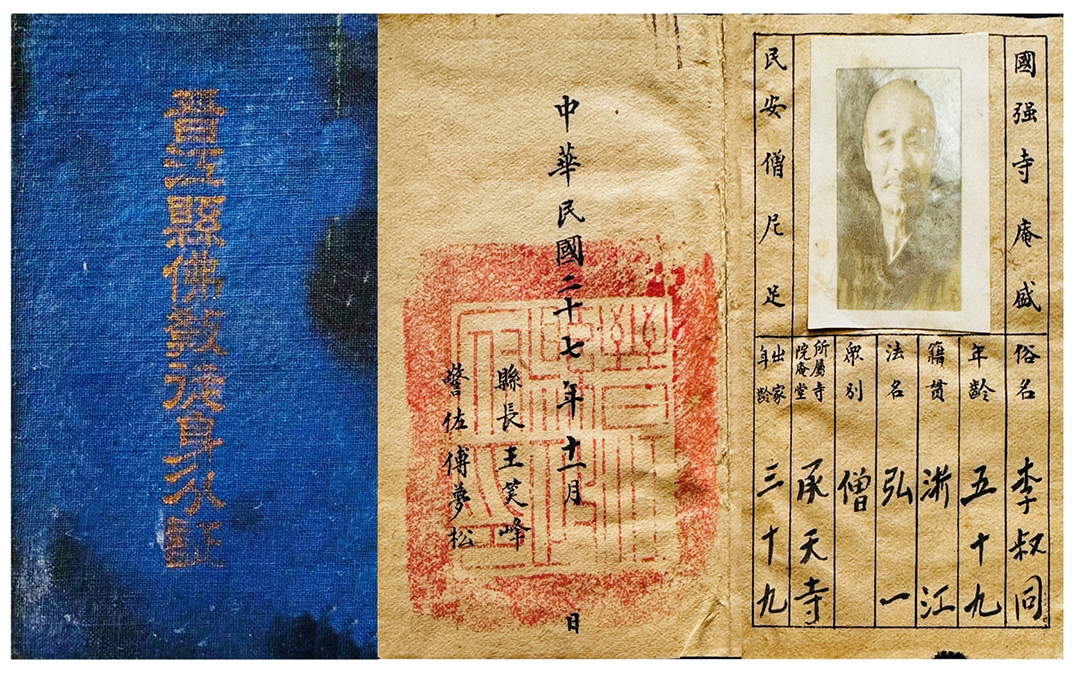 晋江縣佛教徒身份証
中華民國二十七年十一月 日
縣長王笑峰
警佐傅夢松
國强寺庵盛
民安僧尼足
俗名 李叔同
年齡 五十九
籍貫 浙江
法名 弘一
眾別 僧
所屬寺院庵堂 承天寺
出家年齡 三十九